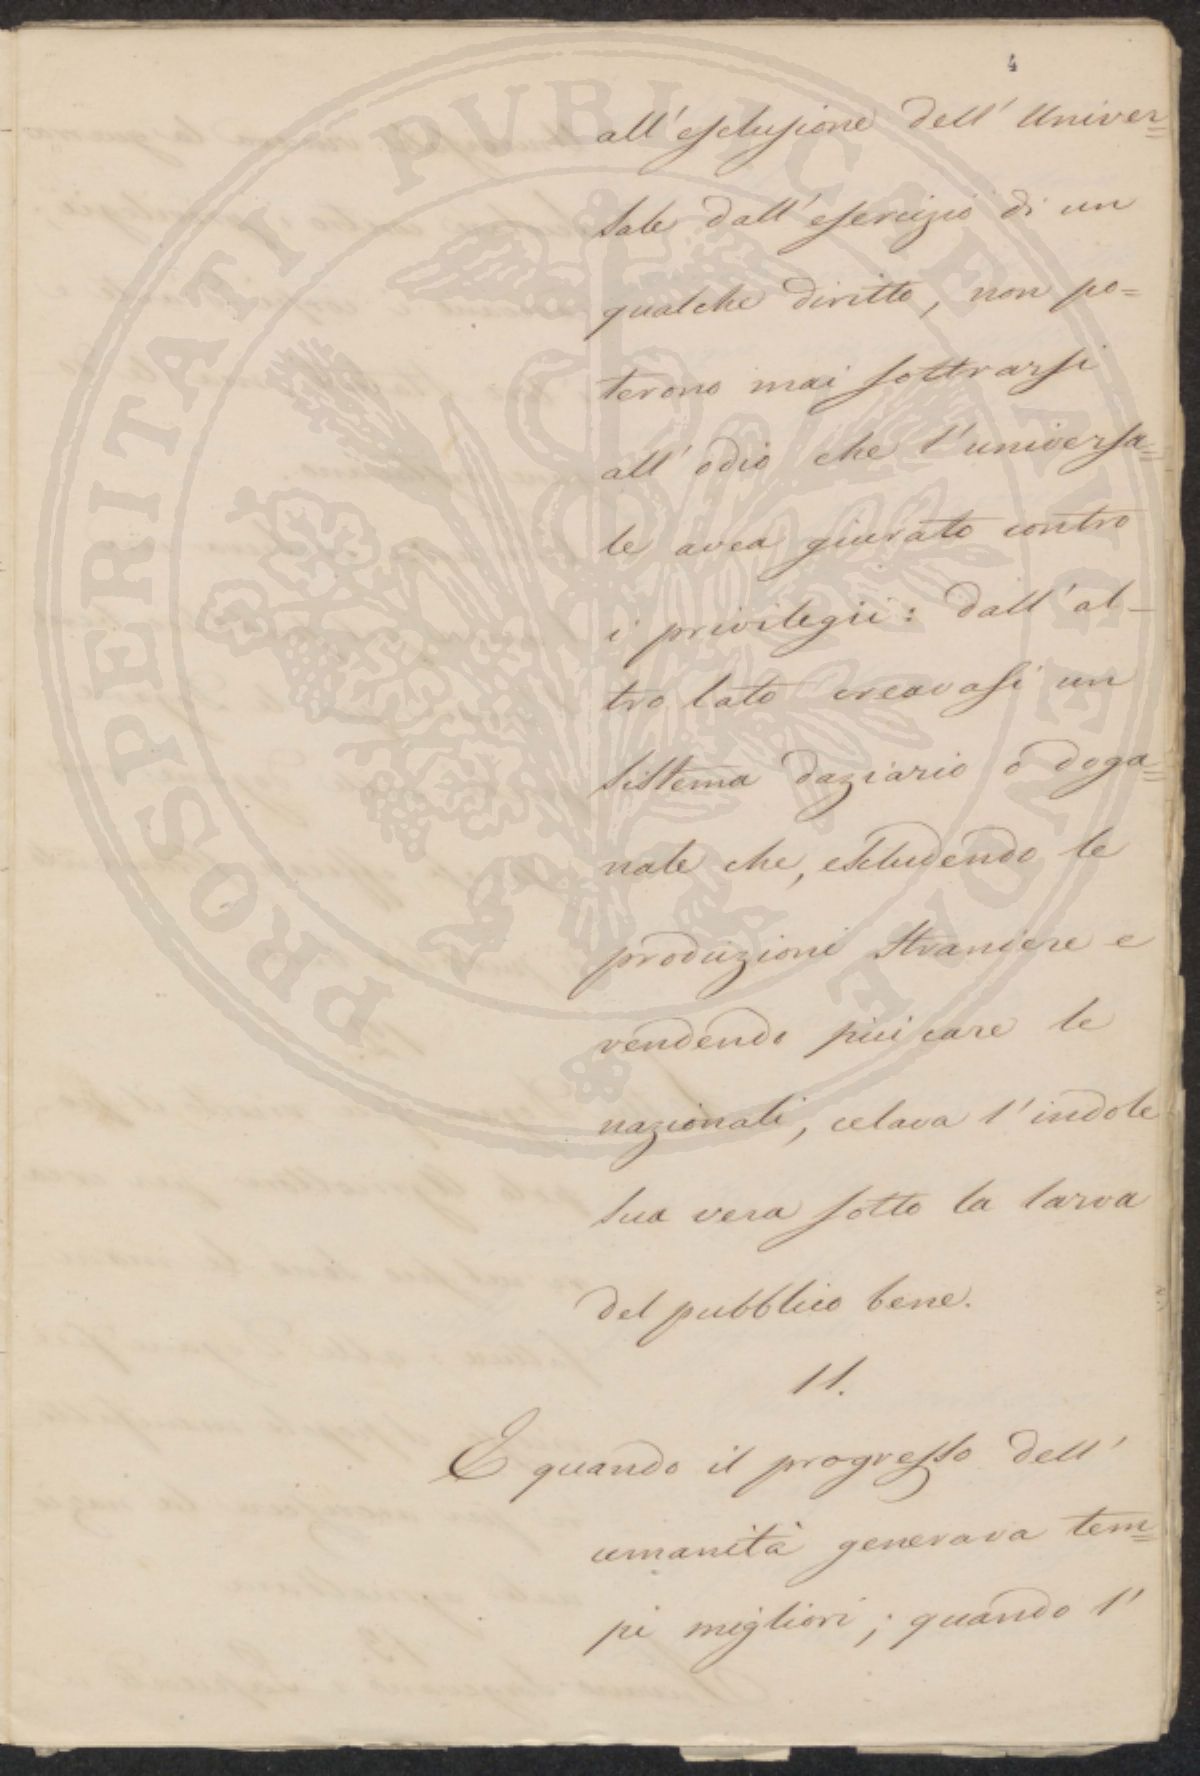 4
all'esclusione dell'Univer=
sale dall'esercizio di un
qualche diritto, non po=
terono mai sottrarsi
all'odio che l'universa=
le avea giurato contro
i privilegii: dall'al-
tro lato creavasi un
sistema daziario o doga=
nale che, escludendo le
produzioni straniere e
vendendo più care le
nazionali, celava l'indole
sua vera sotto la larva
del pubblico bene.
11.
E quando il progresso dell'
umanità generava tem=
pi migliori; quando l'
PROSPERITATI PVBLICAE AVGENDAE